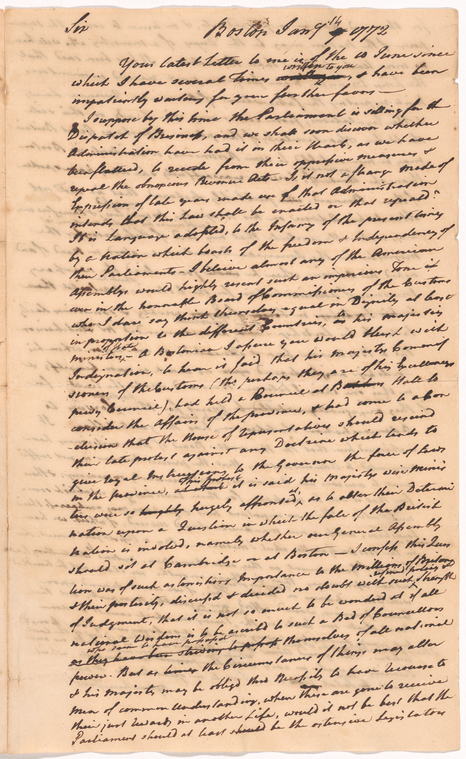 Sir Boston Jany 14 1772
Your latest Letter to me is of the 10 June since
which I have several times written to you, & have been
impatiently waiting for your further favors —
I suppose by this time the Parliament is sitting for the
Dispatch of Business, and we shall soon discern whether
Administration have had it in their Heart, as we have
been flattered, to recede from their oppressive measures &
repeal the obnoxious Revenue Acts. Is it not a strange Mode of
Expression of late years made use of that Administration
intends that this Law shall be enacted or that repeald
It is Language adopted, to the Infamy of the present times
by a Nation which boasts of the freedom & Independency of
their Parliaments — I believe almost any of the American
Assemblys would highly resent such an imperious Tone if
even in the honorable Board of Commissioners of the Customs
who I dare say think themselves equal in Dignity at least
in proportion to the different Countries, to his majestys
ministers of state — A Bostonian I assure you would blush with
Indignation, to hear it said that his majestys Commis
sioners of the Customs (the perhaps they are of his Excellencys
privy Council), had held a Council at Hall to
consider the affairs of the province, & had come to a Con
clusion that the House of representatives should rescind
their late protest against any Doctrine which tends to
give royal Instructions to the Governor the force of Laws
in the province, This protest it is said his Majestys wise Minis
ters were so hugely affronted, as to alter their Determi
nation upon a Question in which the fate of the British
Nation is involvd, namely whether our General Assembly
should sit at Cambridge or at Boston — I confess this Ques
tion was of such astonishing Importance to the Millions of Britons
& their posterity, discussd & decided no doubt with such Strength
of Judgment, that it is not so much to be wondered at if all
national Wisdom is to be ascribd to such a Bod of Councellors
themselves of all national
power. But as times & the Circumstances of things may alter
& his majesty may be obligd thro Necessity to have recourse to
men of common Understanding, when these are gone to receive
their just rewards in another Life, would it not be best that the
Parliament should at least should be the ostensive Legislators